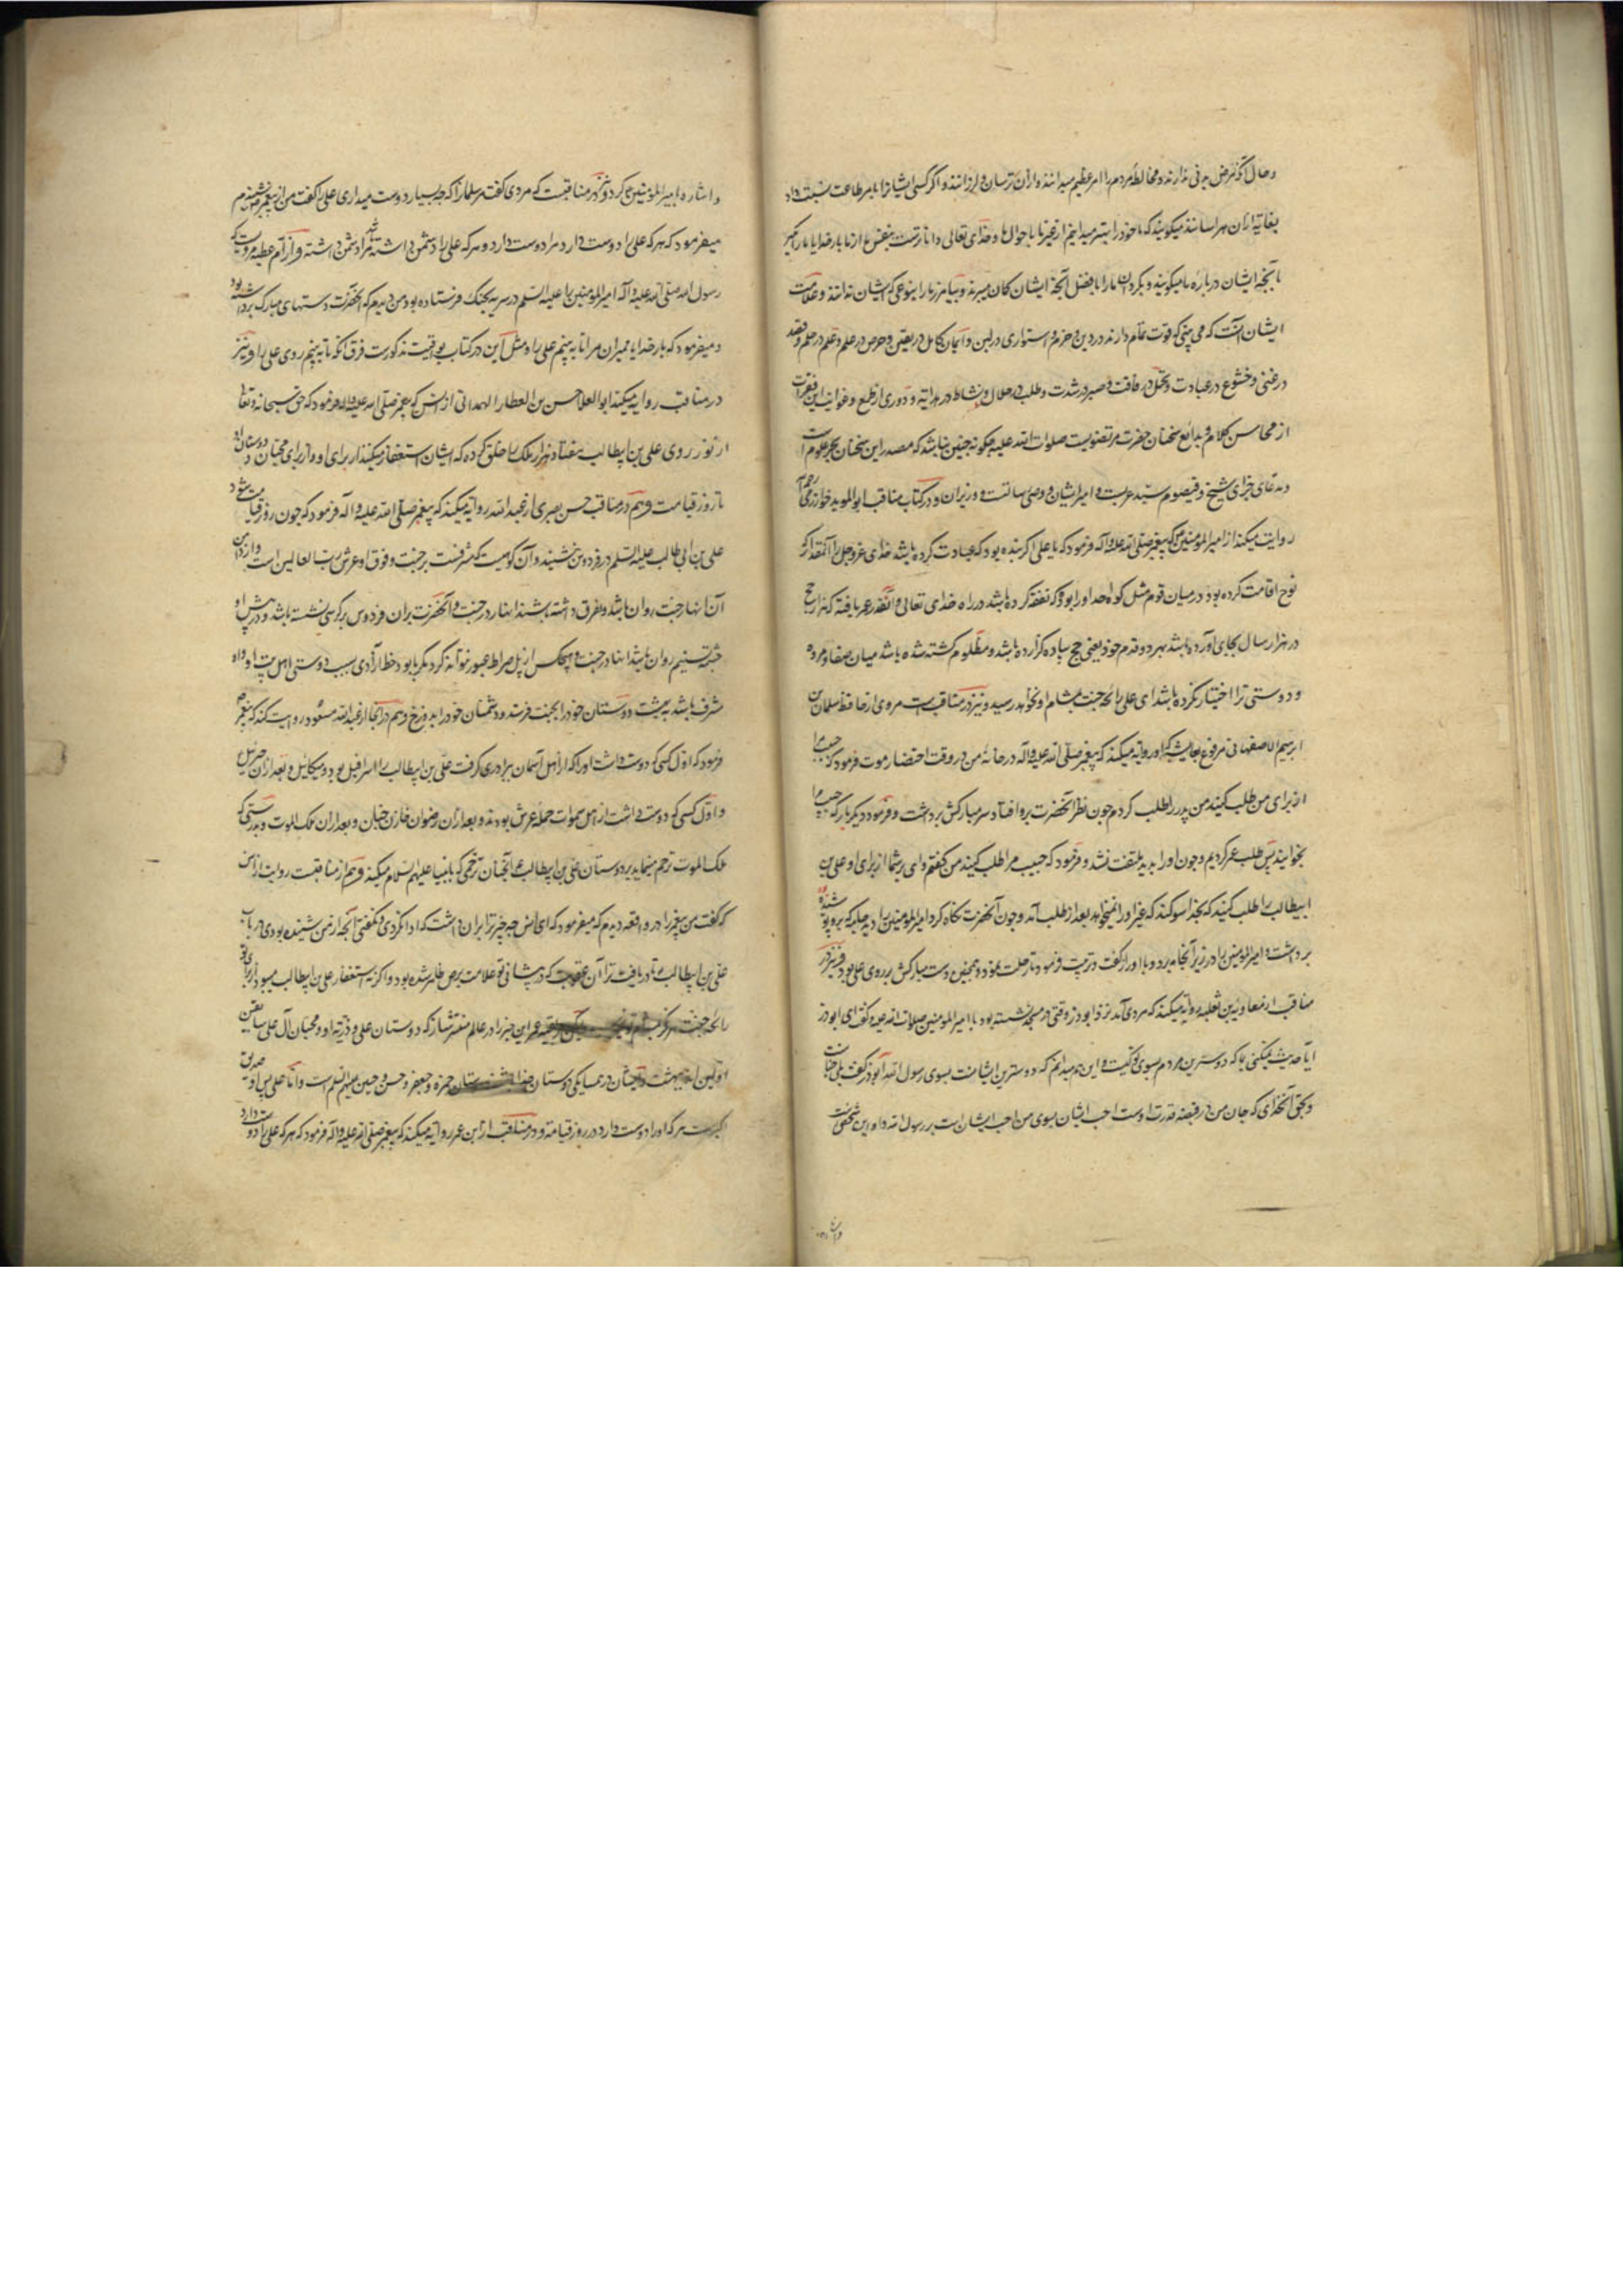 و حال آنکه مرض بدنی ندارند و مخالطه مردم را امر عظیم میدانند و از آن ترسان و لرزانند و اگر کسی ایشانرا بامر طاعت نسبت داد
بغایة از آن هراسانند میکویند که ما خود را بهتر میدانیم از غیر ما باحوال ما و خدای تعالی داناترست بنفس ما از ما بار خدایا ما را مکیر
بآنچه ایشان درباره ما میکویند و بکردان ما را بافضل آنچه ایشان کمان میبرند و بیامرز ما را بنوعی که ایشان ندانند و علامت
ایشان آنست که می بینی که قوت تمام دارند در دین و حزم و استواری در لین و ایمان کامل در یقین و حرص در علم و علم در حلم و قصد
در غنی و خشوع در عبادت و تحمل در فاقت و صبر در شدت و طلب در حلال و نشاط در هدایة و دوری از طمع و غوایت این فقرات
از محاسن کلام و بدایع سخنان حضرت مرتضویست صلوات الله علیه چکونه چنین نباشد که مصدر این سخنان بحر علوم است
سید عربست و امیر ایشان و وصی رسالتست و وزیر آن و در کتاب مناقب ابوالموید خوارزمی
روایت میکند از امیرالمومنین که پیغمبر صلی الله علیه و آله فرمود که یا علی اکر بنده بود که عبادت کرده باشد خدای عز و جل را آنمقدار که
نوح اقامت کرده بود در میان قوم مثل کوه احد او را بود که نفقه کرده باشد در راه خدای تعالی و آنقدر عمر یافته که هزار حج
در هزار سال بجای آورده باشد بهر دو قدم خود یعنی حج پیاده کزارده باشد و مظلوم کشته شده باشد میان صفا و مروه
و دوستی ترا اختیار نکرده باشد ای علی رائحه جنت بمشام او نخواهد رسید و نیز در مناقبست مروی از حافظ سلمان بن
ابرهیم الاصفهانی مرفوع بعایشه که او روایة میکند که پیغمبر صلی الله علیه و آله در خانه من در وقت احتضار موت فرمود که حبیب مرا
از برای من طلب کنید من پدر را طلب کردم چون نظر آنحضرت برو افتاد سر مبارکش برداشت و فرمود دیکر بار که حبیب مرا
بخوانید پس طلب عمر کردیم و چون او را بدید ملتفت نشد و فرمود که حبیب مرا طلب کنید من کفتم وای بر شما از برای او علی بن
ابیطالب را طلب کنید که بخدا سوکند که غیر او را نمیخواهد بعد از طلب آمد و چون آنحضرت نکاه کرد امیرالمومنین را دید جامه که برو پوشیده
برداشت و امیرالمومنین را در زیر آنجامه برد و با او راز کفت و تربیت فرمود تا رحلت نمود و همچنین دست مبارکش بر روی علی بود و نیز در
مناقب از معاویة بن ثعلبه روایة میکند که مردی آمد نزد ابوذر وقتی در مسجد نشسته بود با امیرالمومنین صلوات الله علیه و کفت ای ابوذر
ایا حدیث نمیکنی بما که دوسترین مردم بسوی تو کیست و این هم میدانم که دوسترین ایشانست بسوی رسول الله ابوذر کفت بلی چنانست
و بحق آنخدای که جان من در قبضه قدرت اوست احب ایشان بسوی من احب ایشان است بر رسول الله و او این شخص است
و اشاره بامیرالمومنین کرد و نیز در مناقبست که مردی کفت مر سلمانرا که چه بسیار دوست میداری علی را کفت من از پیغمبر شنیدم
میفرمود که هر که علی را دوست دارد مرا دوست دارد و هر که علی را دشمن داشته باشد مرا دشمن داشته و از ام عطیه مرویست که
رسول الله صلی الله علیه و آله امیرالمومنین را علیه السلم در سریه بجنک فرستاده بود من دیدم که آنحضرت دستهای مبارک برداشته بود
و میفرمود که بار خدایا ممیران مرا تا به بینم علی را و مثل این در کتاب یواقیت مذکورست فرق آنکه تا به بینم روی علی را و نیز
در مناقب روایه میکند ابوالعلا حسن بن العطار الهمدانی از انس که پیغمبر صلی الله علیه و اله فرمود که حق سبحانه و تعالی
از نور روی علی بن ابیطالب هفتاد هزار ملک را خلق کرده که ایشان استغفار میکنند از برای او و از برای محبان و دوستان او
تا روز قیامت و هم در مناقب حسن بصری از عبدالله روایه میکند که پیغمبر صلی الله علیه و اله فرمود که چون روز قیامت شود
علی بن ابی طالب علیه السلم در فردوس نشیند و آن کوهیست که مشرفست بر جنت و فوق او عرش رب العالمین است و از دامن
آن انهار جنت روان باشد و تفرق داشته باشند انهار در جنت و آنحضرت بران فردوس بر کرسی نشسته باشد و در پیش او
چشمه تسنیم روان باشد انها در جنت و هیچکس از پل صراط عبور نتواند کرد مکر با بود خط آزادی بسبب دوستی اهل بیت او و او
مشرف باشد به بهشت دوستان خود را بجنت فرستد و دشمنان خود را بدوزخ و هم در آنجا از عبدالله مسعود روایت کند که پیغمبر
فرمود که اول کسی که دوست داشت او را که از اهل آسمان برادری کرفت علی بن ابیطالب را اسرافیل بود و میکائیل و بعد از آن جبرئیل
و اول کسی که دوست داشت از اهل سموات حمله عرش بودند و بعد از آن رضوان خازن جنان و بعد از آن ملک الموت و بدرستی که
ملک الموت ترحم مینماید بر دوستان علی بن ابیطالب آنچنان ترحمی که بانبیا علیهم السلام میکند و هم از مناقبت روایت از انس
که کفت من پیغمبر را در واقعه دیدم که میفرمود که ای انس چه چیز ترا بران داشت که ادا نکردی و نکفتی آنچه از من شنیده بودی در باب
علی بن ابیطالب تا دریافت ترا آن عقوبت که در پیشانی تو علامت برص ظاهر شده بود و اکر نه استغفار علی بن ابیطالب میبود از برای تو
رائحه جنت هرکز بمشام تو این خبر را در عالم منتشر ساز که دوستان علی و ذریة او و محبان آل علی سابقین
اولین اند ببهشت و ایشان در همسایکی دوستان خدا حمزه و جعفر و حسن و حسین علیهم السلم است و اما علی پس او صدیق
اکبرست هر که او را دوست دارد در روز قیامه و در مناقب از ابن عمر روایه میکند که پیغمبر صلی الله علیه و اله فرمود که هر که علی را دوست دارد